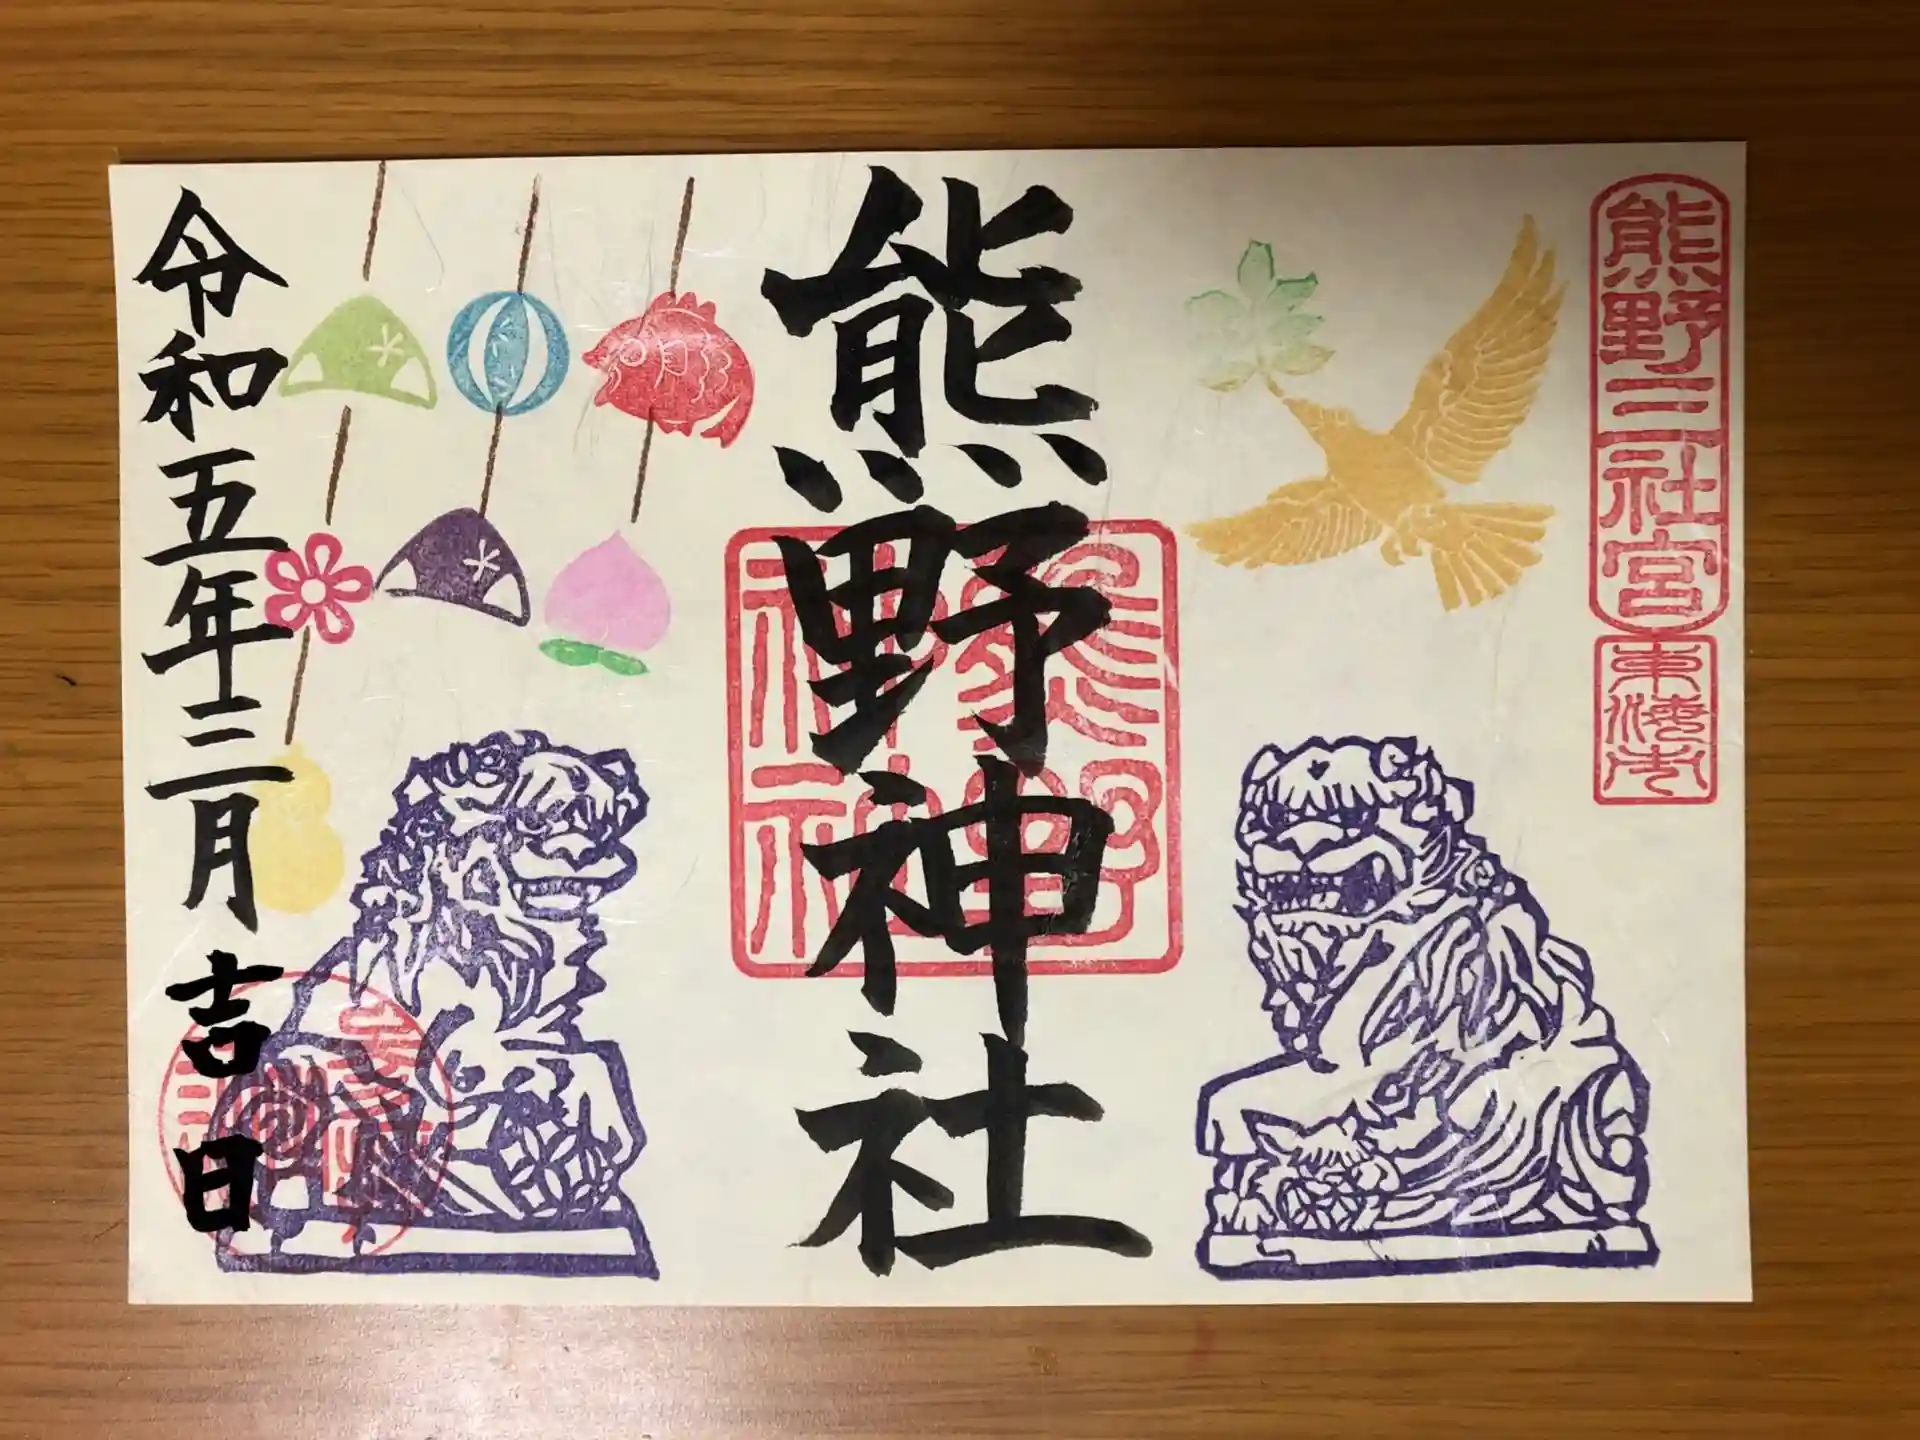 熊野三社宮
東海市
熊野神社
熊野
神社
令和五年三月吉日